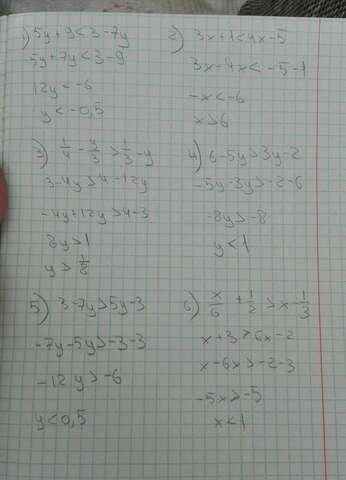 1) 5y+9<3-7y
5y+7y<3-9
12y<-6
y<-0,5
2) 3x+1<4x-5
3x-4x<-5-1
-x<-6
x>6
3) 1/4 - y/3 > 1/3 - y
3-4y>4-12y
-4y+12y>4-3
8y>1
y>1/8
4) 6-5y>3y-2
-5y-3y>-2-6
-8y>-8
y<1
5) 3-7y>5y-3
-7y-5y>-3-3
-12y>-6
y<0,5
6) x/6 + 1/2 > x - 1/3
x+3>6x-2
x-6x>-2-3
-5x>-5
x<1